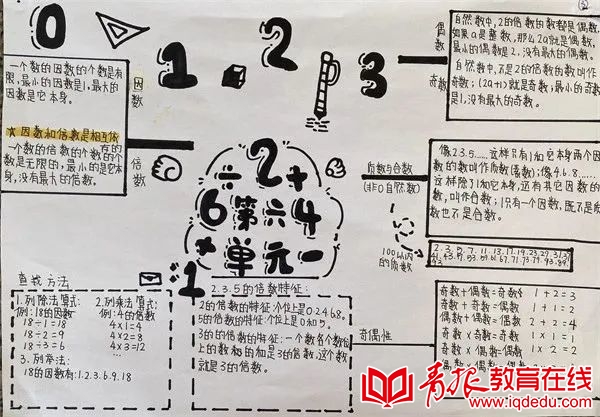 0
1
2
3
一个数的因数的个数是有
限,最小的因数是1,最大的
因数是它本身。
★因数和倍数是相互依
存的
一个数的倍数的个数的个
数是无限的,最小的是它本
身,没有最大的倍数。
因数
倍数
÷2+
6第六4
×单元-
1
偶数
奇数
自然数中,2的倍数的数都是偶数,
如果a是整数,那么2a就是偶数,
最小的偶数是2,没有最大的偶数。
自然数中,不是2的倍数的数叫作
奇数;(2a+1)就是奇数,最小的奇数
是1,没有最大的奇数。
质数与合数
(非0自然数)
像2.3.5……这样只有1和它本身两个因
数的数叫作质数(素数);像4.6.8……
这样除了1和它本身,还有其它因数的
数,叫作合数;1只有一个因数,既不是质
数也不是合数。
100以内
的质数
2.3.5.7.11.13.17.19.23.29.31.37
41.43.47.53.59.61.67.71.73.79.83.89
查找方法
1.列除法算式:
例:18的因数
18÷1=18
18÷2=9
18÷3=6
2.列乘法算式:
例:4的倍数
4×1=4
4×2=8
4×3=12
...
3.列举法:
18的因数有:1.2.3.6.9.18
2.3.5的倍数特征:
2的倍数的特征:个位上是0.2.4.6.8。
5的倍数的特征:个位上是0和5。
3的的倍数的特征:一个数各个数位
上的数相的和是3的倍数,这个数
就是3的倍数。
奇偶性
奇数+偶数=奇数 1+2=3
奇数+奇数=偶数 1+1=2
偶数+偶数=偶数 2+2=4
奇数×奇数=奇数 1×1=1
奇数×偶数=偶数 1×2=2
偶数×偶数=偶数
青报教育在线
www.iqdedu.com